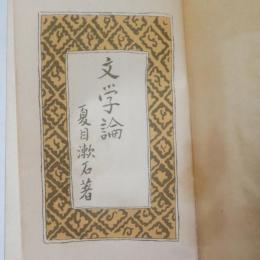 文学論
夏目漱石著